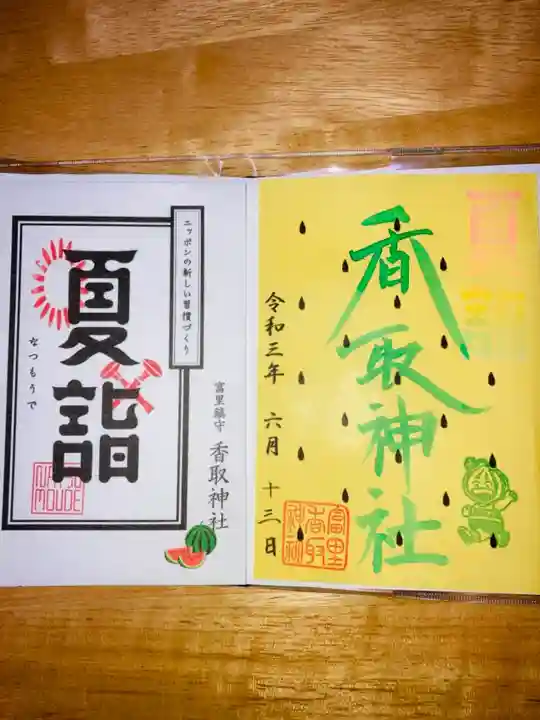 ニッポンの新しい習慣づくり
夏詣
なつもうで
NATSU
MOUDE
富里鎮守 香取神社
夏詣
香取神社
令和三年 六月 十三日
富里
香取
神社